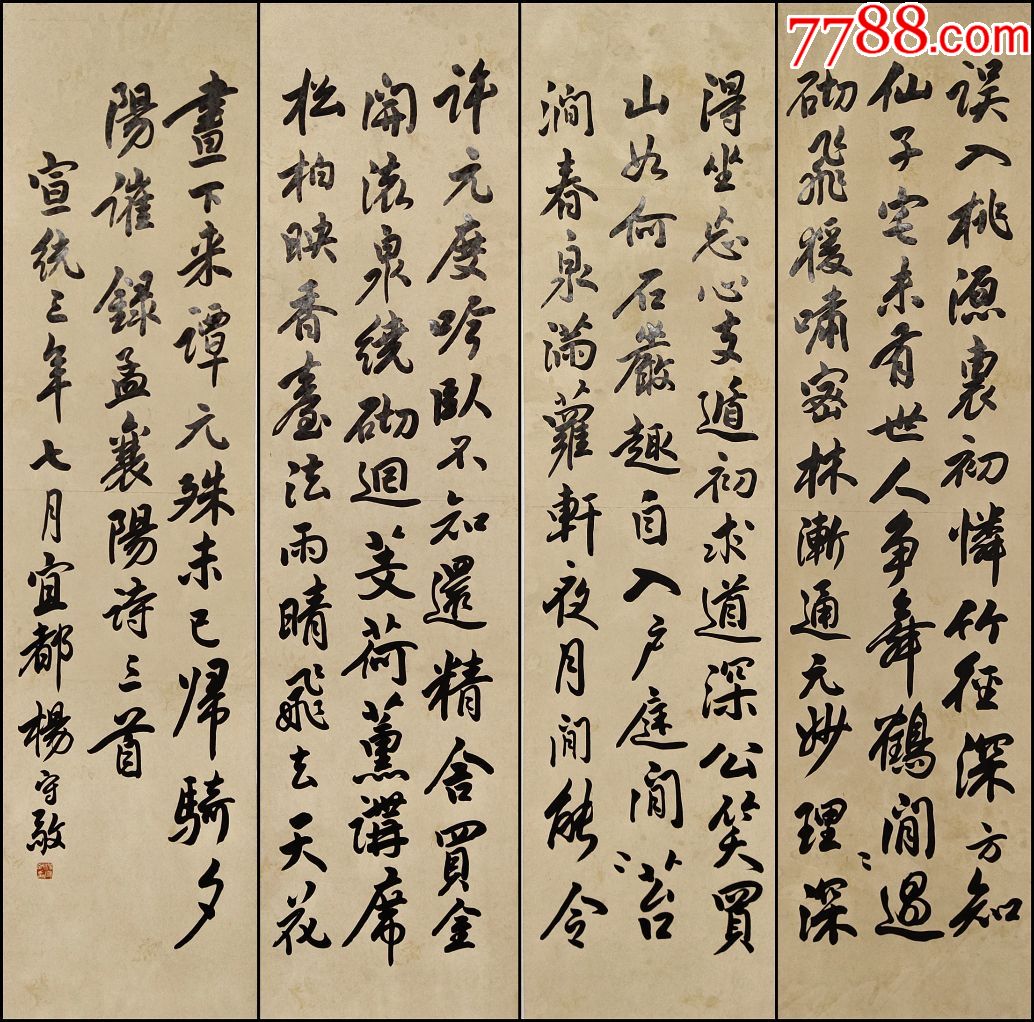 7788.com
誤入桃源裏初憐竹徑深方知
仙子宅未有世人尋舞鶴閒過
砌飛猨嘯密林漸通元妙理深
得坐忘心支遁初求道深公笑買
山如何石巖趣自入户庭間苔
澗春泉滿蘿軒夜月閒能令
許元度吟臥不知還精舍買金
開流泉繞砌迴芰荷薰講席
松柏映香臺法雨晴飛去天花
晝下来譚元殊未已歸騎夕
陽催 錄孟襄陽詩三首
宣統三年七月宜都楊守敬